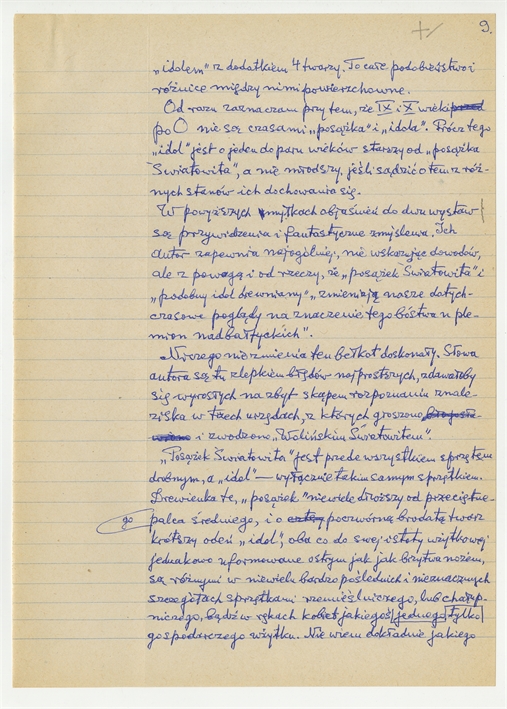 9.
„idolem” z dodatkiem 4 twarzy. To całe podobieństwo i
różnice między nimi powierzchowne.
Od razu zaznaczam przy tem, że IX i X wieki przed
po O nie są czasami „posążka” i „idola”. Prócz tego
„idol” jest o jeden do paru wieków starszy od „posążka
Światowita”, a nie młodszy, jeśli sądzić o tem z róż-
nych stanów ich dochowania się.
W powyższych myłkach objaśnień do dwu wystaw
są przywidzenia i fantastyczne zmyślenia. Ich
autor zapewnia najogólniej, nie wskazując dowodów,
ale z powagą i od rzeczy, że „posążek Światowita” i
„podobny idol drewniany” „zmieniają nasze dotych-
czasowe poglądy na znaczenie tego bóstwa u ple-
mion nadbałtyckich”.
Niczego nie zmienia ten bełkot doskonały. Słowa
autora są tu zlepkiem błędów najprostszych, zdawałoby
się wyrosłych na zbyt skąpem rozpoznaniu znale-
ziska w trzech urzędach, z których groszono
i zwodzono „Wolińskim Światowitem”.
„Posążek Światowita” jest przede wszystkiem sprzętem
drobnym, a „idol” — wyłącznie takim samym sprzętkiem.
Drewienka te, „posążek” niewiele dłuższy od przeciętne-
go palca średniego, i o poczwórną brodatą twarz
krótszy odeń „idol”, oba co do swej istoty użytkowej
jednakowo uformowane ostrym jak jak brzytwa nożem,
są różnymi w niewielu bardzo poślednich i nieznacznych
szczegółach sprzętkami rzemieślniczego, lub chałup-
niczego, bądź w rękach kobiet jakiegoś jednego tylko
gospodarczego użytku. Nie wiem dokładnie jakiego